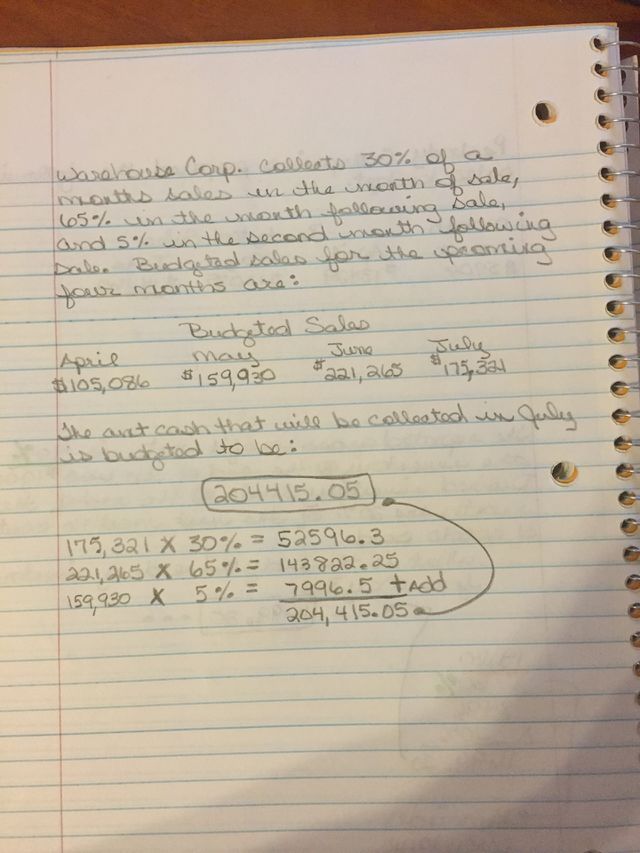 Warehouse Corp. collects 30% of a
months sales in the month of sale,
65% in the month following sale,
and 5% in the second month following
sale. Budgeted sales for the upcoming
four months are:
Budgeted Sales
April May June July
$105,086 $159,930 $221,265 $175,321
The amt cash that will be collected in July
is budgeted to be:
204415.05
175,321 X 30% = 52596.3
221,265 X 65% = 143822.25
159,930 X 5% = 7996.5 + Add
204,415.05